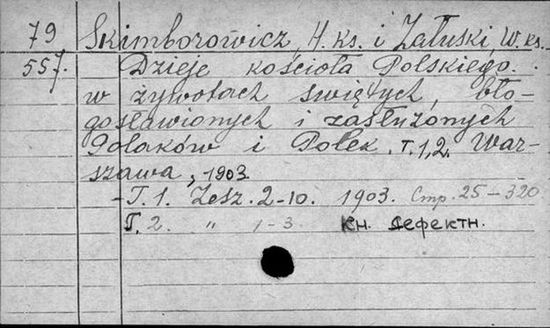 79 Skimborowicz, H. ks. i Załuski, W. ks.
557. Dzieje kościoła Polskiego
w żywotach świętych, bło-
gosławionych i zasłużonych
Polaków i Polek. T. 1, 2. War-
szawa, 1903.
- T. 1. Zesz. 2-10. 1903. Стр. 25-320
T. 2. " 1-3. кн. дефектн.